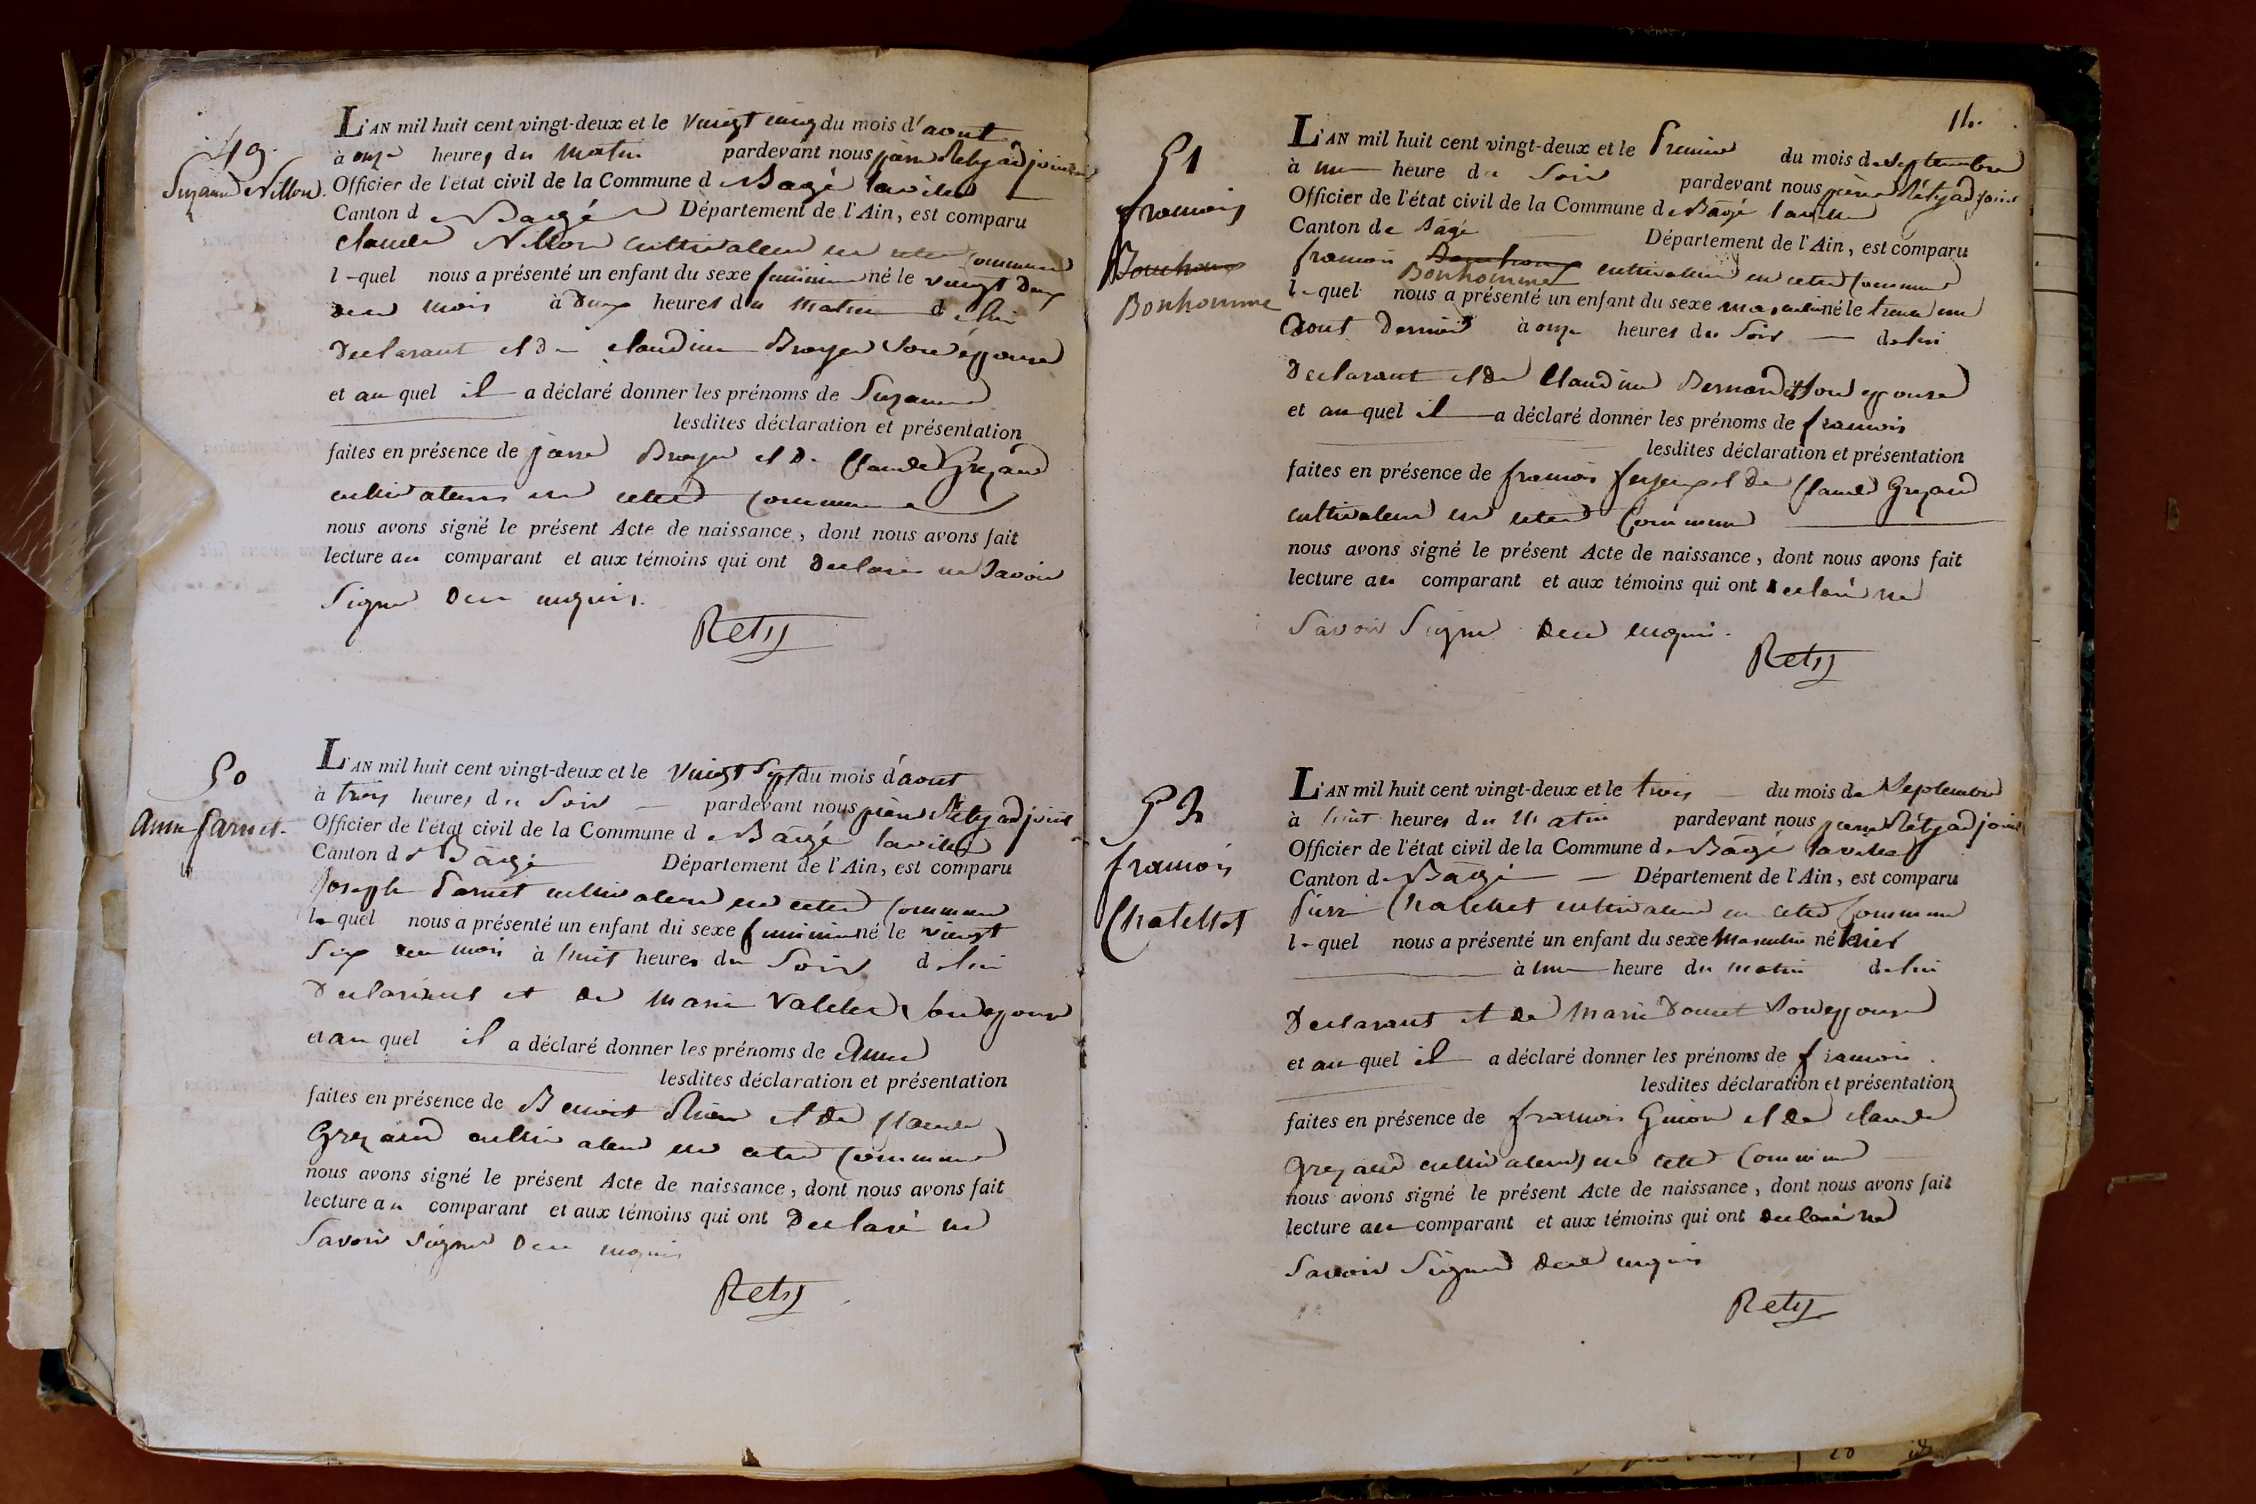 49.
Suzanne Villon.
L'AN mil huit cent vingt-deux et le vingt cinq du mois d'aout
à onze heures du matin pardevant nous pierre Réty adjoint
Officier de l'état civil de la Commune de Bagé laville
Canton de Bagé Département de l'Ain, est comparu
claude Villon cultivateur en cette commune
lequel nous a présenté un enfant du sexe feminin né le vingt deux
de ce mois à deux heures du matin de lui
Declarant et de claudine Broyer Son epouse
et auquel il a déclaré donner les prénoms de Suzanne
lesdites déclaration et présentation
faites en présence de pierre Broyer et de Claude Grezaud
cultivateurs en cette commune
nous avons signé le présent Acte de naissance, dont nous avons fait
lecture au comparant et aux témoins qui ont Declaré ne Savoir
Signer de ce enquis.
Rety
50
Anne Parnet.
L'AN mil huit cent vingt-deux et le vingt Sept du mois d'aout
à trois heures du Soir pardevant nous pierre Réty adjoint
Officier de l'état civil de la Commune de Bagé laville
Canton de Bagé Département de l'Ain, est comparu
Joseph Parnet cultivateur en cette commune
lequel nous a présenté un enfant du sexe feminin né le vingt
Six de ce mois à huit heures du Soir de lui
Declarant et de marie Son epouse
et au quel il a déclaré donner les prénoms de Anne
lesdites déclaration et présentation
faites en présence de Benoit et de Claude
Grezaud cultivateur en cette commune
nous avons signé le présent Acte de naissance, dont nous avons fait
lecture au comparant et aux témoins qui ont Declaré ne
Savoir Signer de ce enquis
Rety
14.
51
francois
Bouchoux
Bonhomme
L'AN mil huit cent vingt-deux et le Premier du mois de Septembre
à une heure du Soir pardevant nous pierre Réty adjoint
Officier de l'état civil de la Commune de Bagé laville
Canton de Bagé Département de l'Ain, est comparu
francois Bouchoux cultivateur en cette commune
Bonhomme
lequel nous a présenté un enfant du sexe masculin né le trente un
aout dernier à onze heures du Soir de lui
Declarant et de Claudine Bernard Son epouse
et au quel il a déclaré donner les prénoms de francois
lesdites déclaration et présentation
faites en présence de francois et de Claude Grezaud
cultivateur en cette Commune
nous avons signé le présent Acte de naissance, dont nous avons fait
lecture au comparant et aux témoins qui ont declaré ne
Savoir Signer de ce enquis.
Rety
52
francois
Chatellet
L'AN mil huit cent vingt-deux et le trois du mois de Septembre
à huit heures du Matin pardevant nous pierre Réty adjoint
Officier de l'état civil de la Commune de Bagé laville
Canton de Bagé Département de l'Ain, est comparu
Pierre Chatellet cultivateur en cette Commune
lequel nous a présenté un enfant du sexe Masculin né hier
à une heure du matin de lui
Declarant et de Marie Son epouse
et au quel il a déclaré donner les prénoms de francois.
lesdites déclaration et présentation
faites en présence de francois Guion et de claude
Grezaud cultivateurs en cette Commune
nous avons signé le présent Acte de naissance, dont nous avons fait
lecture au comparant et aux témoins qui ont declaré ne
Savoir Signer de ce enquis
Rety